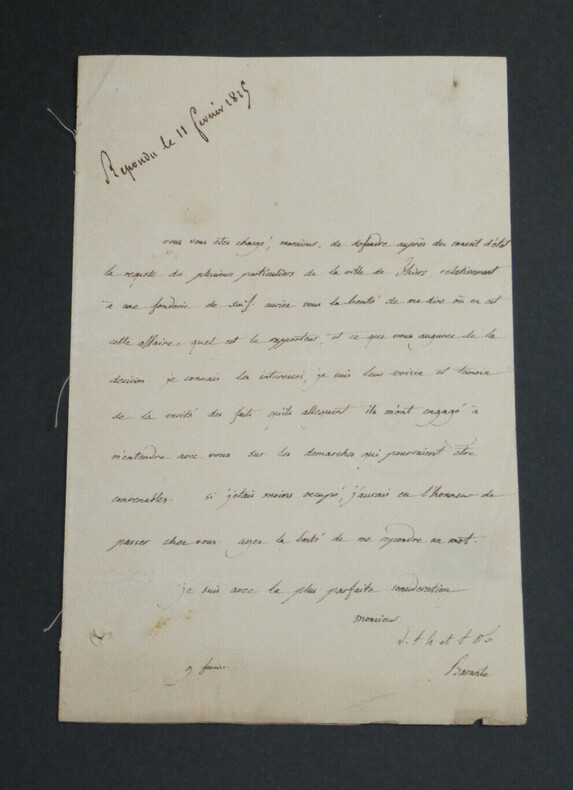 Repondu le 11 fevrier 1825
vous vous êtes chargé, monsieur, de defendre auprès du conseil d'état
la requete de plusieurs particuliers de la ville de Thiers, relativement
à une fonderie de suif. auriez vous la bonté de me dire où en est
cette affaire, quel est le rapporteur, et ce que vous augurez de la
decision. je connais les interessés, je suis leur voisin et temoin
de la verité des faits qu'ils alleguent. ils m'ont engagé à
m'entendre avec vous sur les demarches qui pourraient être
convenables. si j'etais moins occupé, j'aurais eu l'honneur de
passer chez vous. ayez la bonté de me repondre un mot.
je suis avec la plus parfaite consideration
monsieur
v. t h et t o s
Barante
9 fevrier